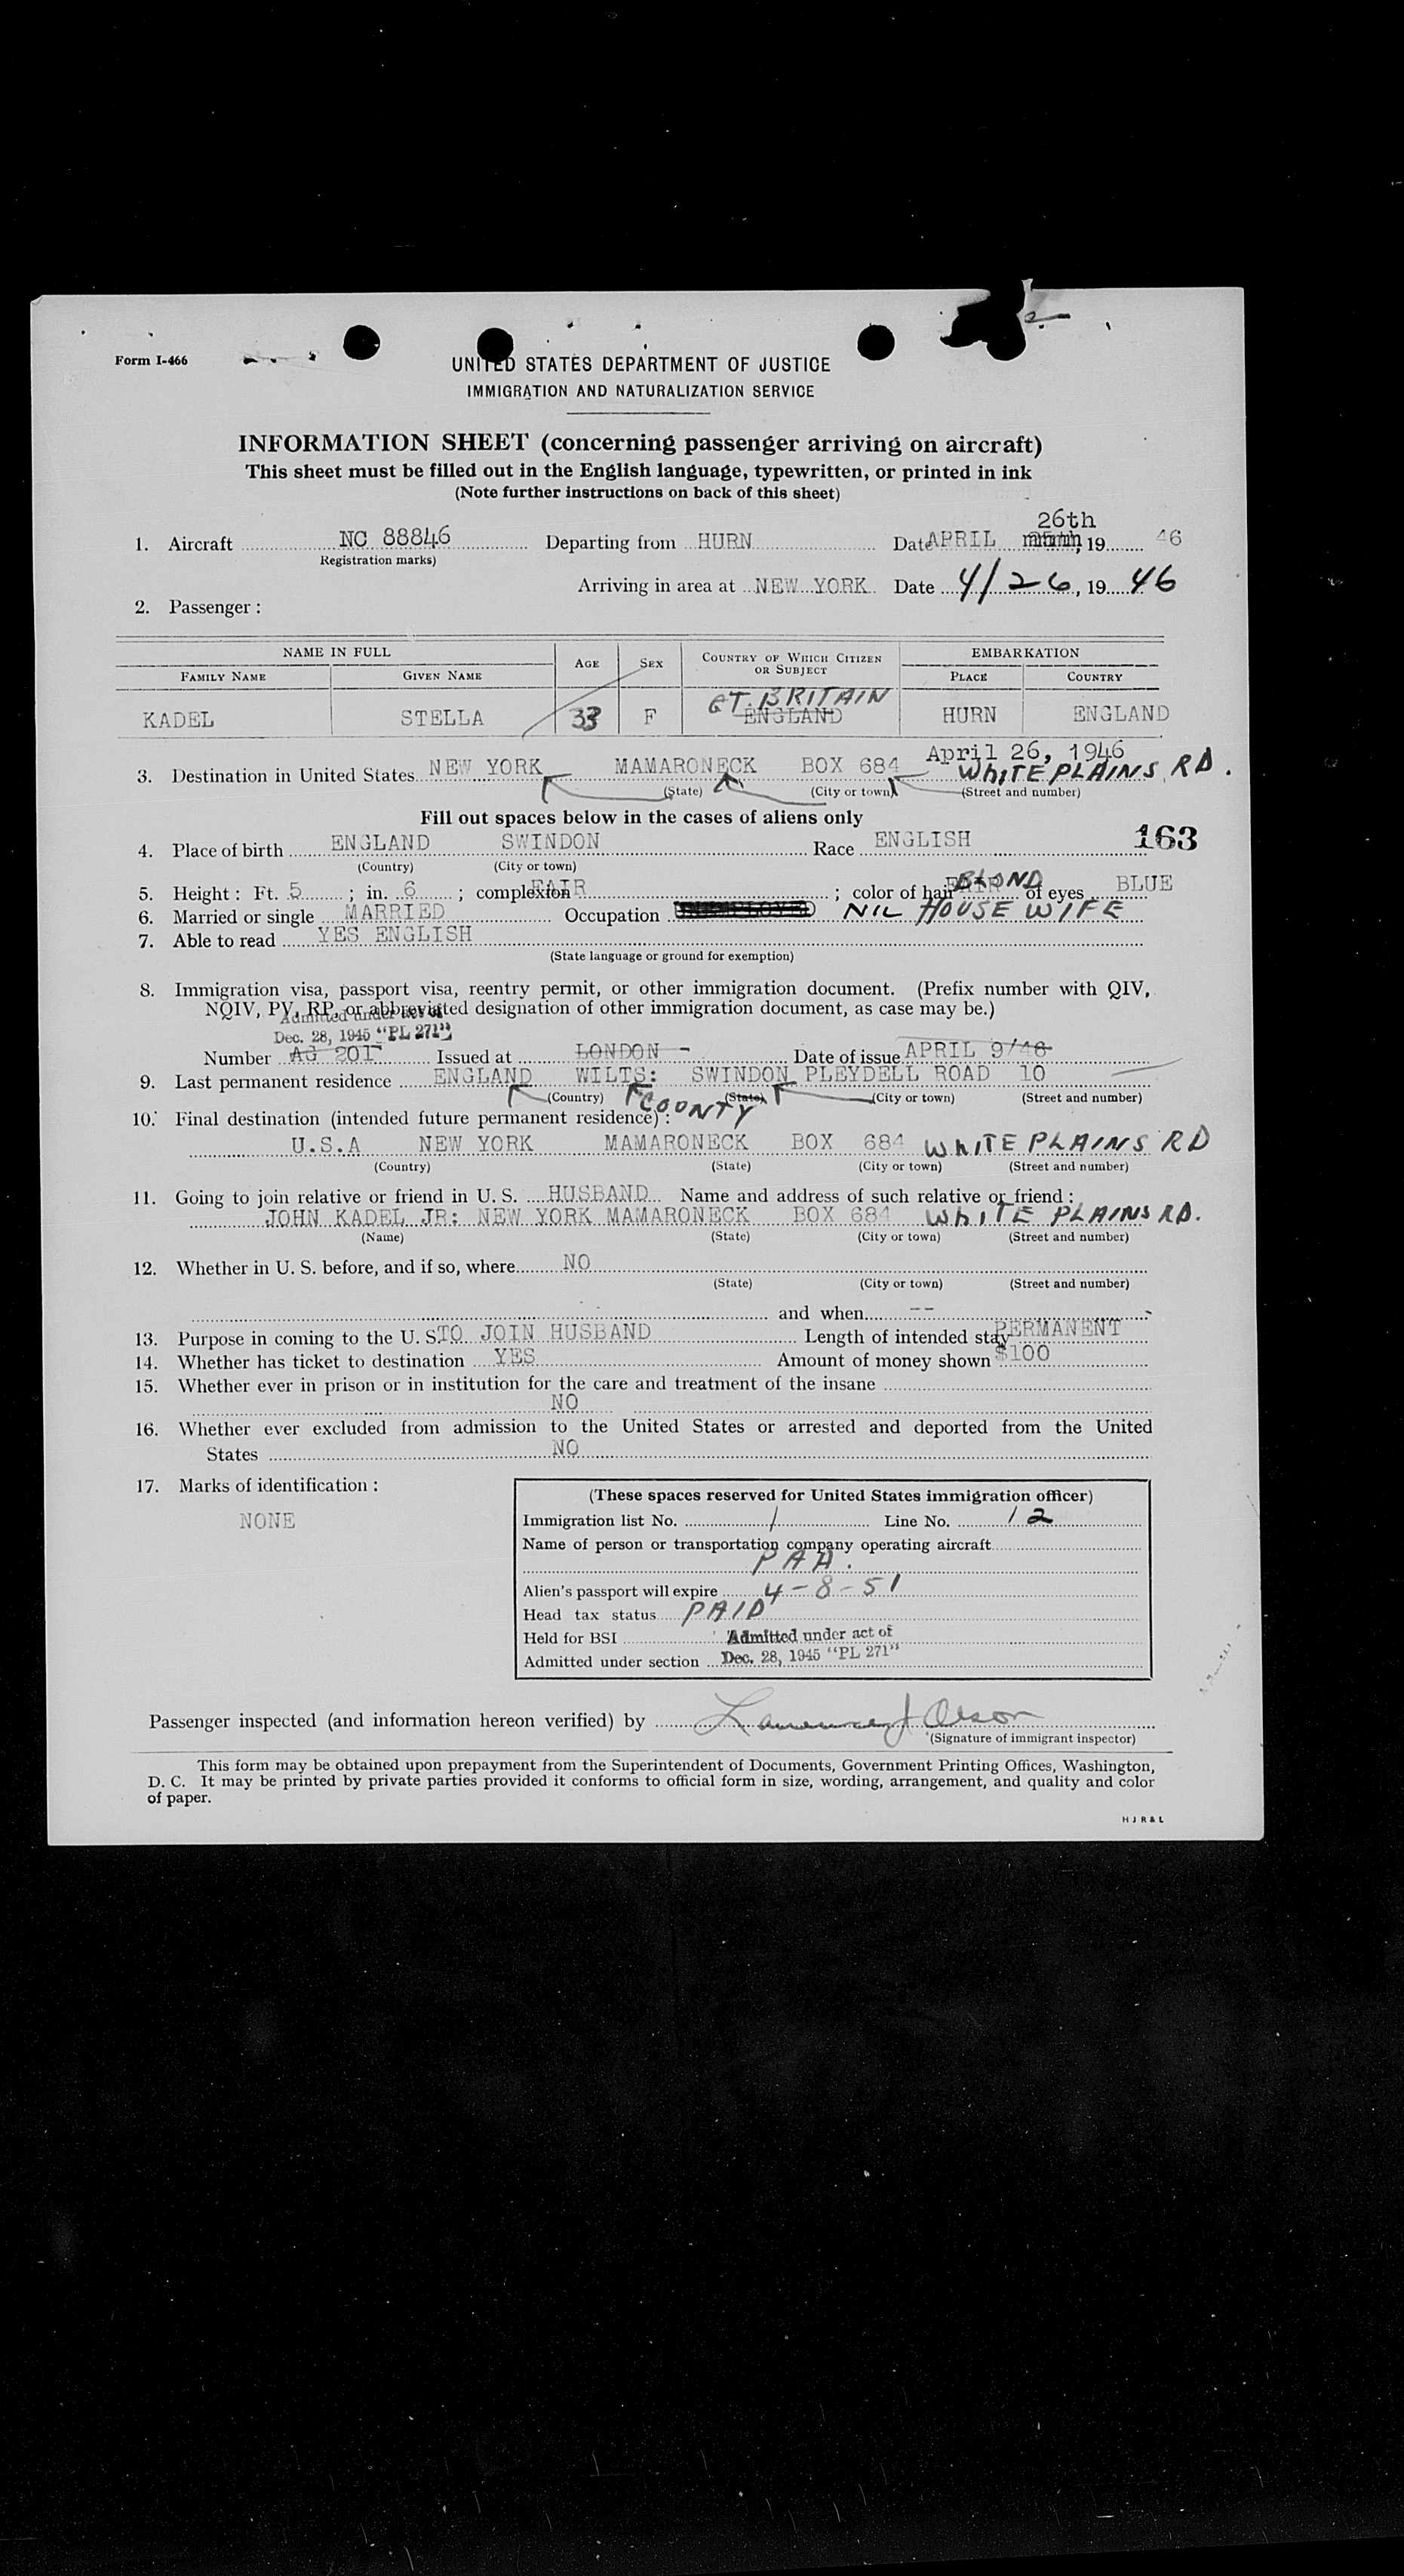 Form I-466
UNITED STATES DEPARTMENT OF JUSTICE
IMMIGRATION AND NATURALIZATION SERVICE
INFORMATION SHEET (concerning passenger arriving on aircraft)
This sheet must be filled out in the English language, typewritten, or printed in ink
(Note further instructions on back of this sheet)
26th
1. Aircraft NC 88846 Departing from HURN Date APRIL , 19 46
Registration marks)
Arriving in area at NEW YORK Date 4/26, 19 46
2. Passenger :
NAME IN FULL AGE SEX COUNTRY OF WHICH CITIZEN OR SUBJECT EMBARKATION
FAMILY NAME GIVEN NAME PLACE COUNTRY
GT. BRITAIN
KADEL STELLA 33 F ENGLAND HURN ENGLAND
April 26, 1946
3. Destination in United States NEW YORK MAMARONECK BOX 684 WHITE PLAINS RD.
(State) (City or town) (Street and number)
Fill out spaces below in the cases of aliens only
163
4. Place of birth ENGLAND SWINDON Race ENGLISH
(Country) (City or town)
5. Height : Ft. 5 ; in. 6 ; complexion FAIR ; color of hair FAIR BLOND of eyes BLUE
6. Married or single MARRIED Occupation NIL HOUSE WIFE
7. Able to read YES ENGLISH
(State language or ground for exemption)
8. Immigration visa, passport visa, reentry permit, or other immigration document. (Prefix number with QIV,
NQIV, PV, RP, or abbreviated designation of other immigration document, as case may be.)
Admitted under act of
Dec. 28, 1945 "PL 271"
Number AG 201 Issued at LONDON - Date of issue APRIL 9/46
9. Last permanent residence ENGLAND WILTS: SWINDON PLEYDELL ROAD 10
(Country) (State) (City or town) (Street and number)
COUNTY
10. Final destination (intended future permanent residence) :
U.S.A NEW YORK MAMARONECK BOX 684 WHITE PLAINS RD
(Country) (State) (City or town) (Street and number)
11. Going to join relative or friend in U. S. HUSBAND Name and address of such relative or friend :
JOHN KADEL JR: NEW YORK MAMARONECK BOX 684 WHITE PLAINS RD.
(Name) (State) (City or town) (Street and number)
12. Whether in U. S. before, and if so, where NO
(State) (City or town) (Street and number)
and when --
13. Purpose in coming to the U. S. TO JOIN HUSBAND Length of intended stay PERMANENT
14. Whether has ticket to destination YES Amount of money shown $100
15. Whether ever in prison or in institution for the care and treatment of the insane
NO
16. Whether ever excluded from admission to the United States or arrested and deported from the United
States NO
17. Marks of identification :
NONE
(These spaces reserved for United States immigration officer)
Immigration list No. 1 Line No. 12
Name of person or transportation company operating aircraft
PAA.
Alien's passport will expire 4-8-51
Head tax status PAID
Held for BSI Admitted under act of
Admitted under section Dec. 28, 1945 "PL 271"
Passenger inspected (and information hereon verified) by Lawrence J Olson
(Signature of immigrant inspector)
This form may be obtained upon prepayment from the Superintendent of Documents, Government Printing Offices, Washington,
D. C. It may be printed by private parties provided it conforms to official form in size, wording, arrangement, and quality and color
of paper.
H J R & L